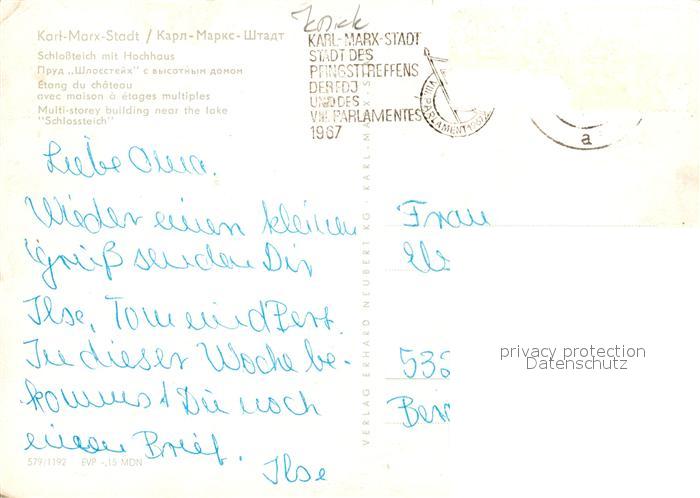 Karl-Marx-Stadt / Карл-Маркс-Штадт
Schloßteich mit Hochhaus
Пруд „Шлосстейх" с высотным домом
Étang du château
avec maison à étages multiples
Multi-storey building near the lake
"Schlossteich"
KARL-MARX-STADT
STADT DES
PFINGSTTREFFENS
DER FDJ
UND DES
VIII. PARLAMENTES
1967
VIII. PARLAMENT
a
Liebe Oma.
Wieder einen kleinen
Gruß senden Dir
Ilse, Tom und Bert.
In dieser Woche be-
kommst Du noch
einen Brief.
Ilse
Frau
532
Ber
VERLAG ERHARD NEUBERT KG · KARL-MARX-S
579/1192 EVP -,15 MDN
privacy protection
Datenschutz